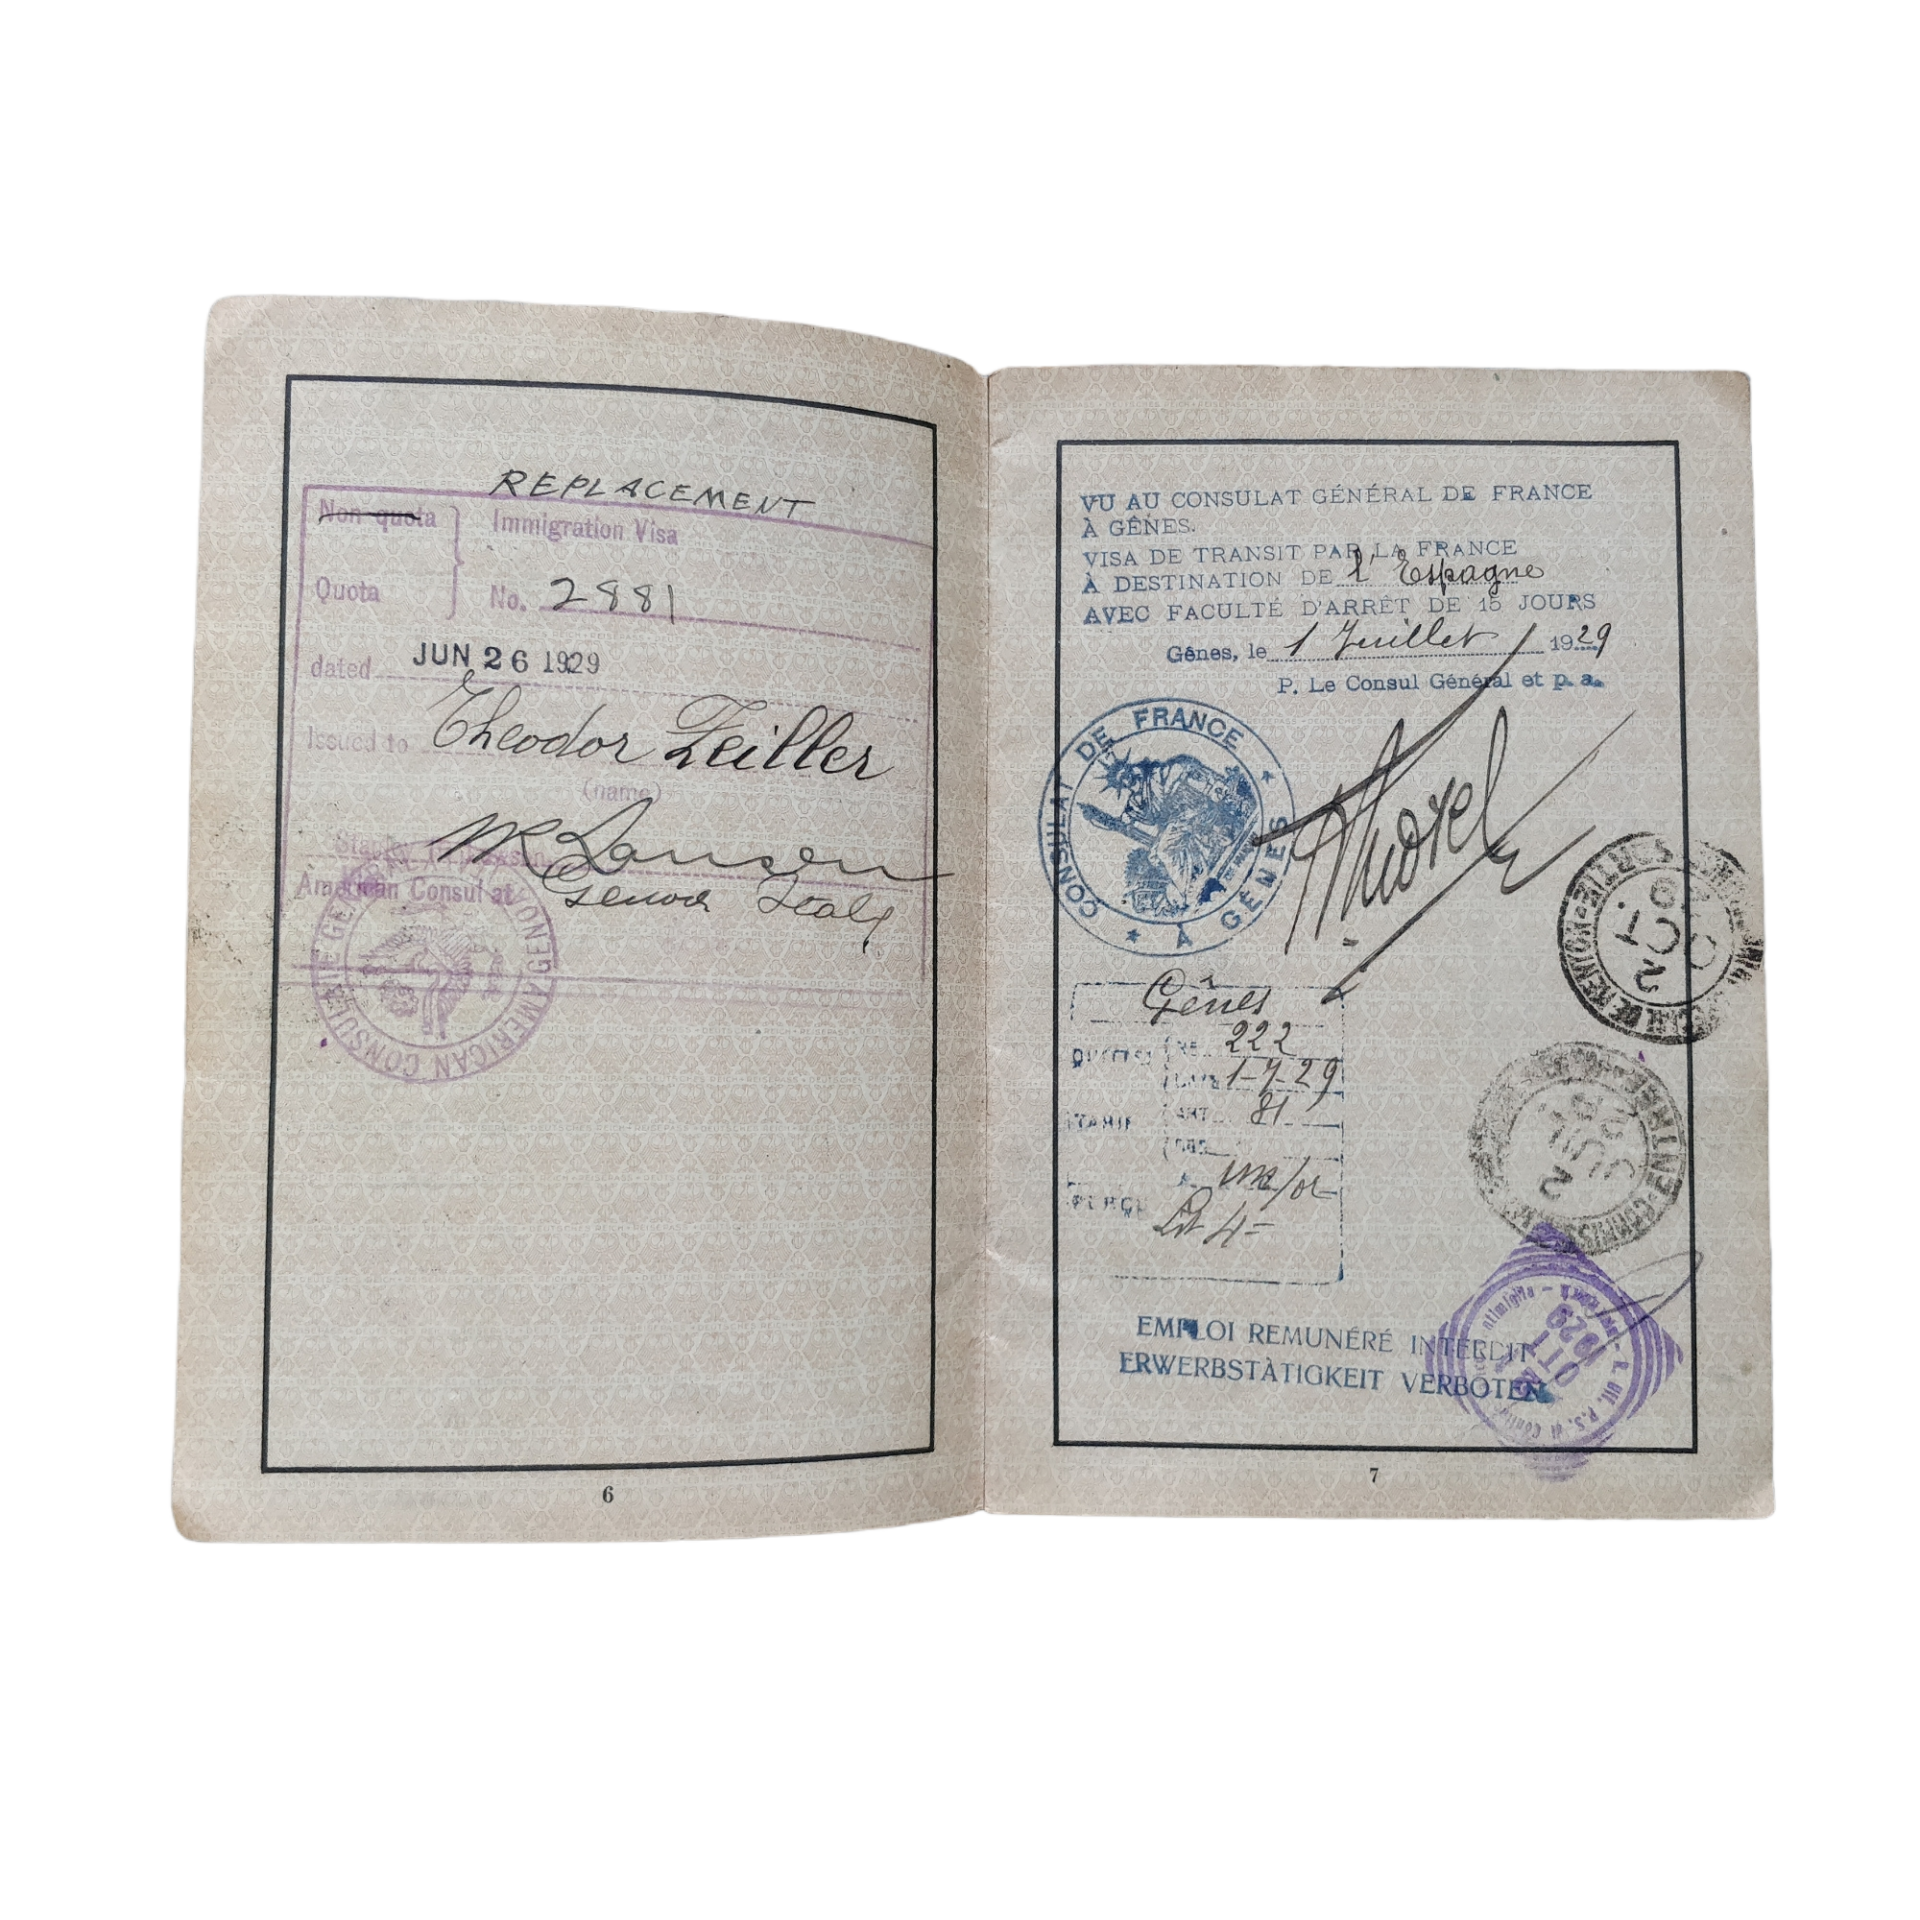 REPLACEMENT
Non-quota
Immigration Visa
Quota
No. 2881
dated JUN 26 1929
Issued to Theodor Zeiller
(name)
American Consul at Genoa Italy
AMERICAN CONSULATE GENERAL
6
VU AU CONSULAT GÉNÉRAL DE FRANCE
À GÊNES.
VISA DE TRANSIT PAR LA FRANCE
À DESTINATION DE l'Espagne
AVEC FACULTÉ D'ARRÊT DE 15 JOURS
Gênes, le 1 Juillet 1929
P. Le Consul Général et p. a.
CONSULAT DE FRANCE
À GÊNES
Morel
Gênes
222
1-7-29
TARIF ART 81
Lit 4=
EMPLOI REMUNÉRÉ INTERDIT
ERWERBSTÀTIGKEIT VERBOTEN
OTT. 1929
7